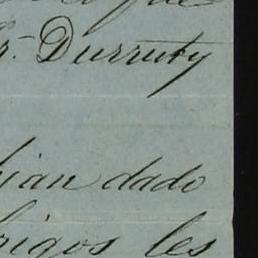 r. Durruty
ian dado
igos les